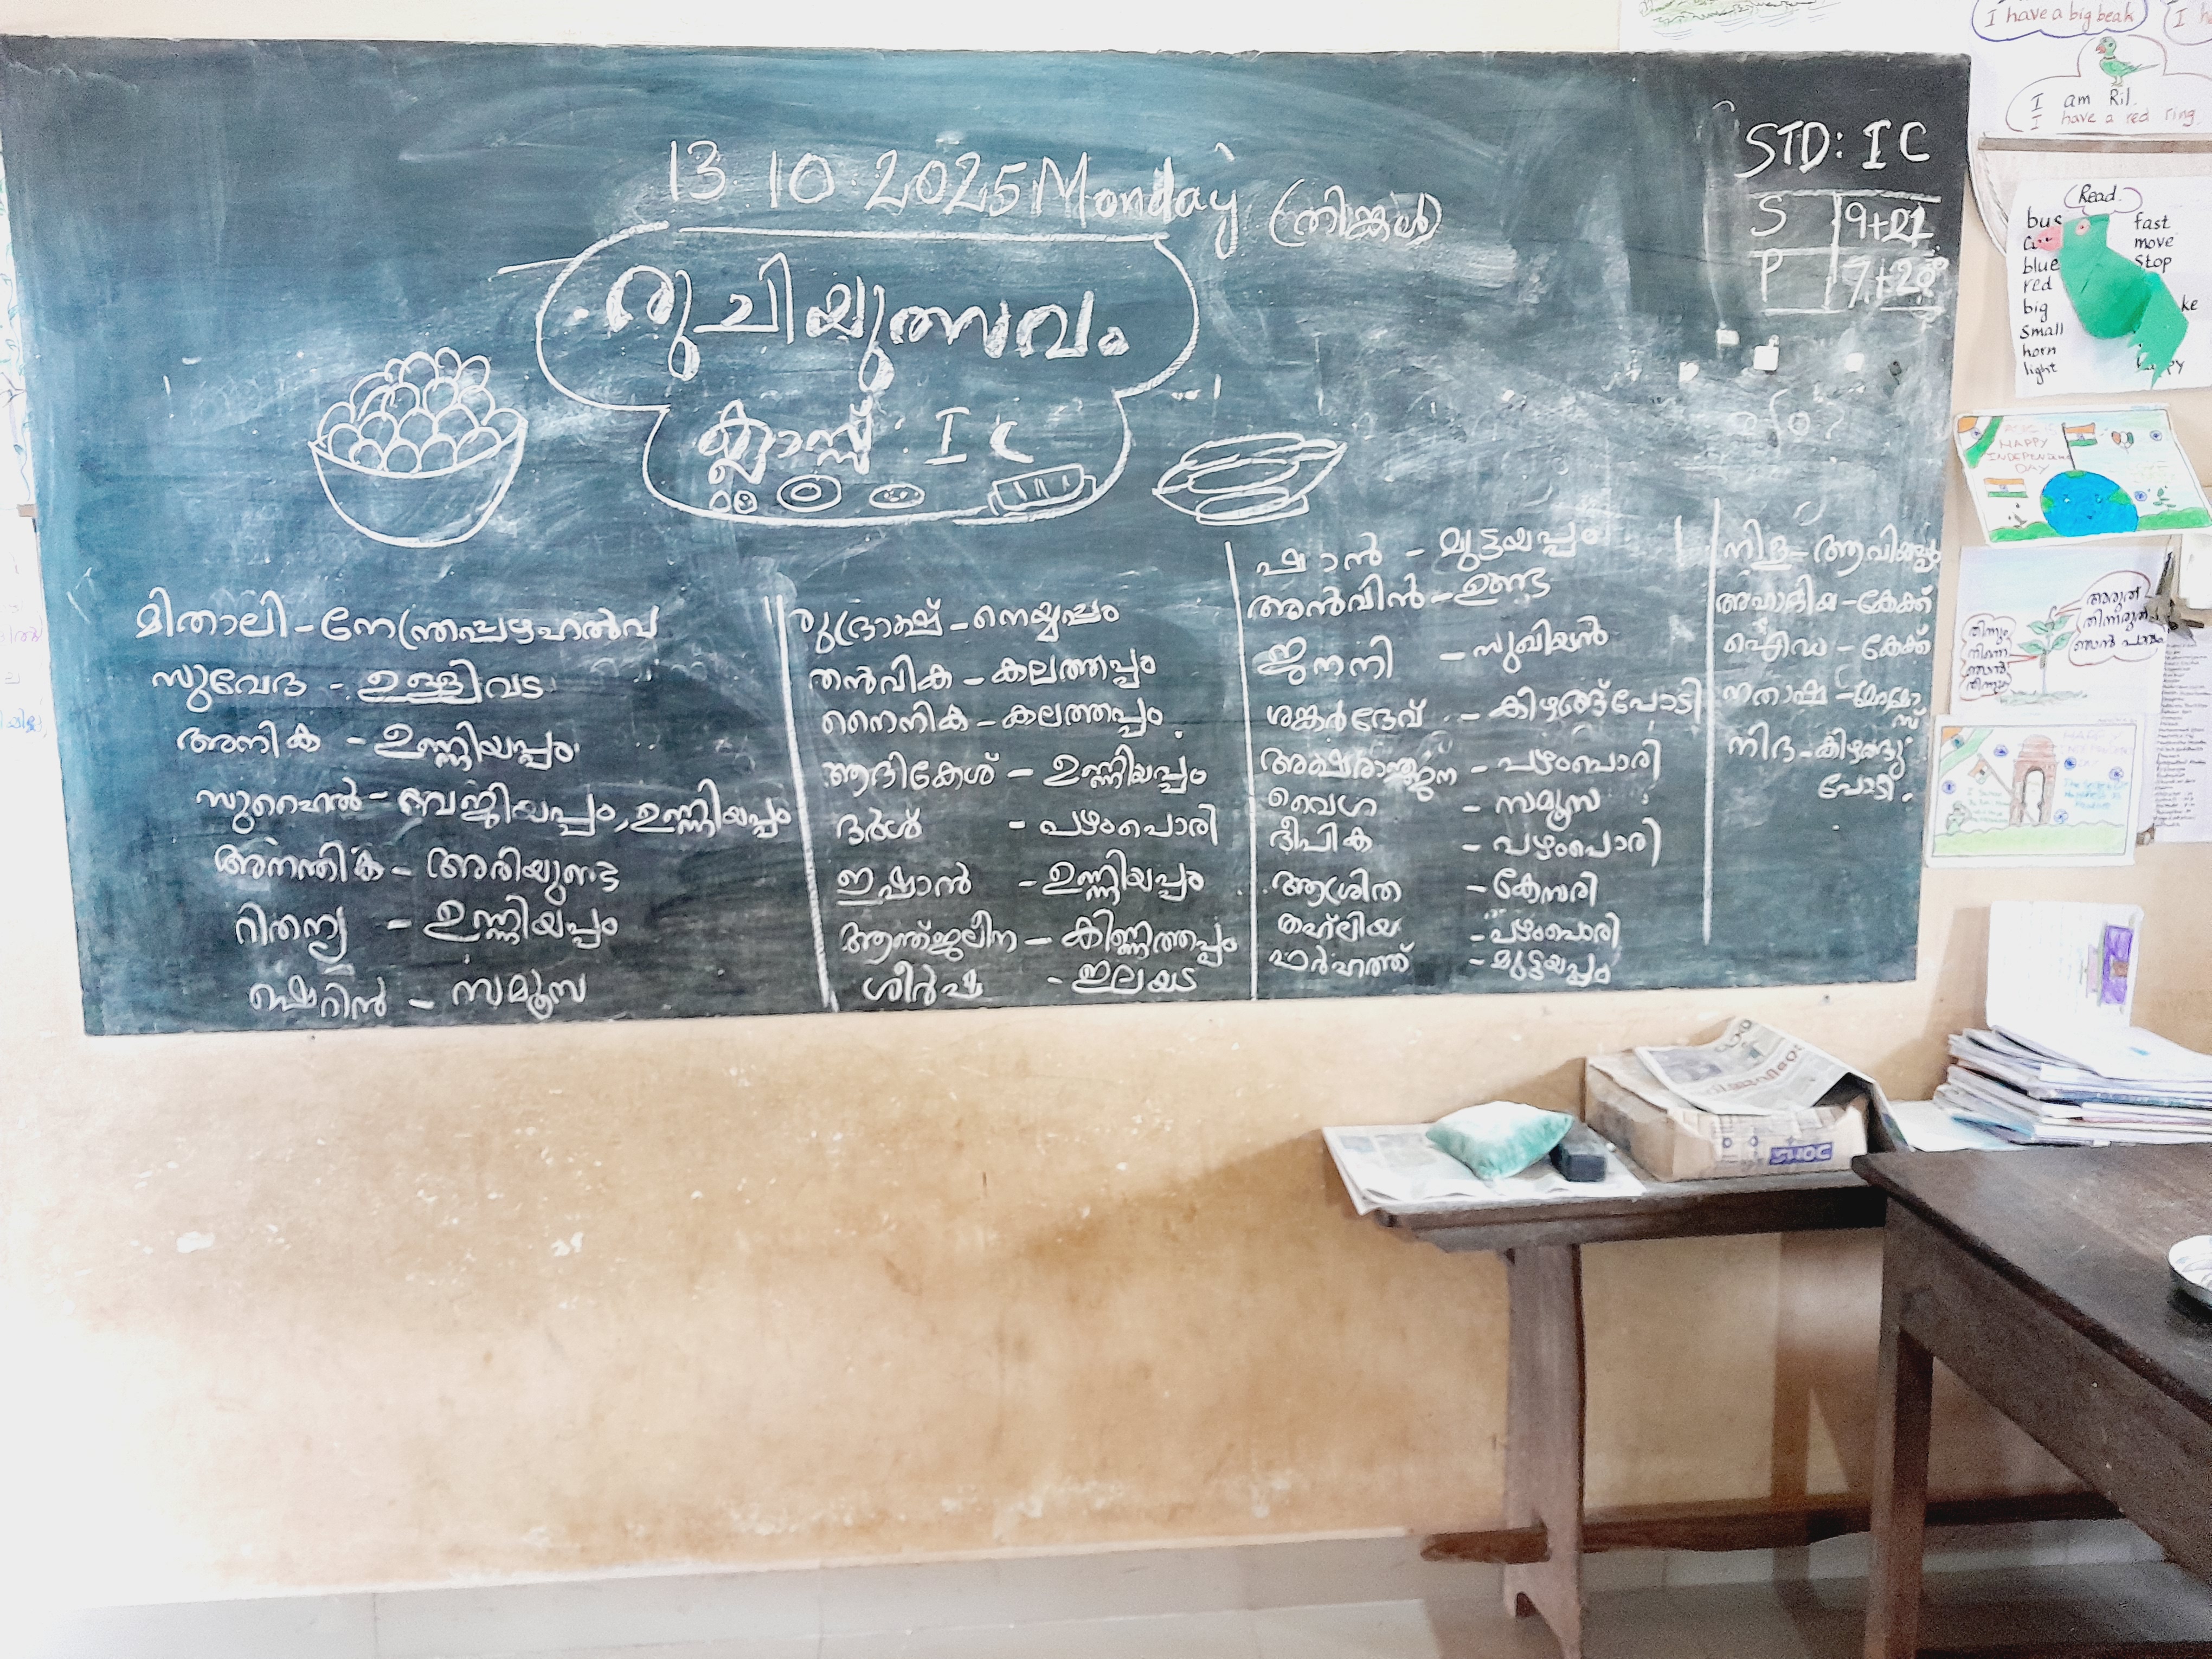 13.10.2025 Monday (തിങ്കൾ)
രുചിയുത്സവം
ക്ലാസ്സ്: I C
STD: I C
S 9+21
P 7+20
മിതാലി - നേന്ത്രപ്പഴഹൽവ
സുവേദ - ഉള്ളിവട
അനിക - ഉണ്ണിയപ്പം
സുഹൈൽ - ബജ്ജിയപ്പം, ഉണ്ണിയപ്പം
അനന്തിക - അരിയുണ്ട
റിതന്യ - ഉണ്ണിയപ്പം
ഷെറിൻ - സമൂസ
രുദ്രാക്ഷ് - നെയ്യപ്പം
തൻവിക - കലത്തപ്പം
നൈനിക - കലത്തപ്പം
ആദികേശ് - ഉണ്ണിയപ്പം
ദർശ് - പഴംപൊരി
ഇഷാൻ - ഉണ്ണിയപ്പം
ആന്ത്ജലീന - കിണ്ണത്തപ്പം
ശീർഷ - ഇലയട
ഷാൻ - മുട്ടയപ്പം
അൻവിൻ - ഉണ്ട
ജനനി - സുഖിയൻ
ശങ്കർദേവ് - കിഴങ്ങ്പോടി
- പഴംപൊരി
വൈഗ - സമൂസ
ദീപിക - പഴംപൊരി
ആശ്രിത - കേസരി
തഹ്ലിയ - പഴംപൊരി
ഫർഹത്ത് - മുട്ടയപ്പം
നിള - ആവിയപ്പം
- കേക്ക്
ഐഡ - കേക്ക്
നതാഷ - മോമോ
സ്
നിദ - കിഴങ്ങു
പോടി.
I have a big beak
I am Ril.
I have a red ring.
Read.
bus fast
move
blue stop
red
big
small
horn
light
HAPPY
INDEPENDENCE
DAY
അരുത്
തിന്നരുത്
ഞാൻ
തിന്നും
നിന്നെ
ഞാൻ
തിന്നും
DOMS